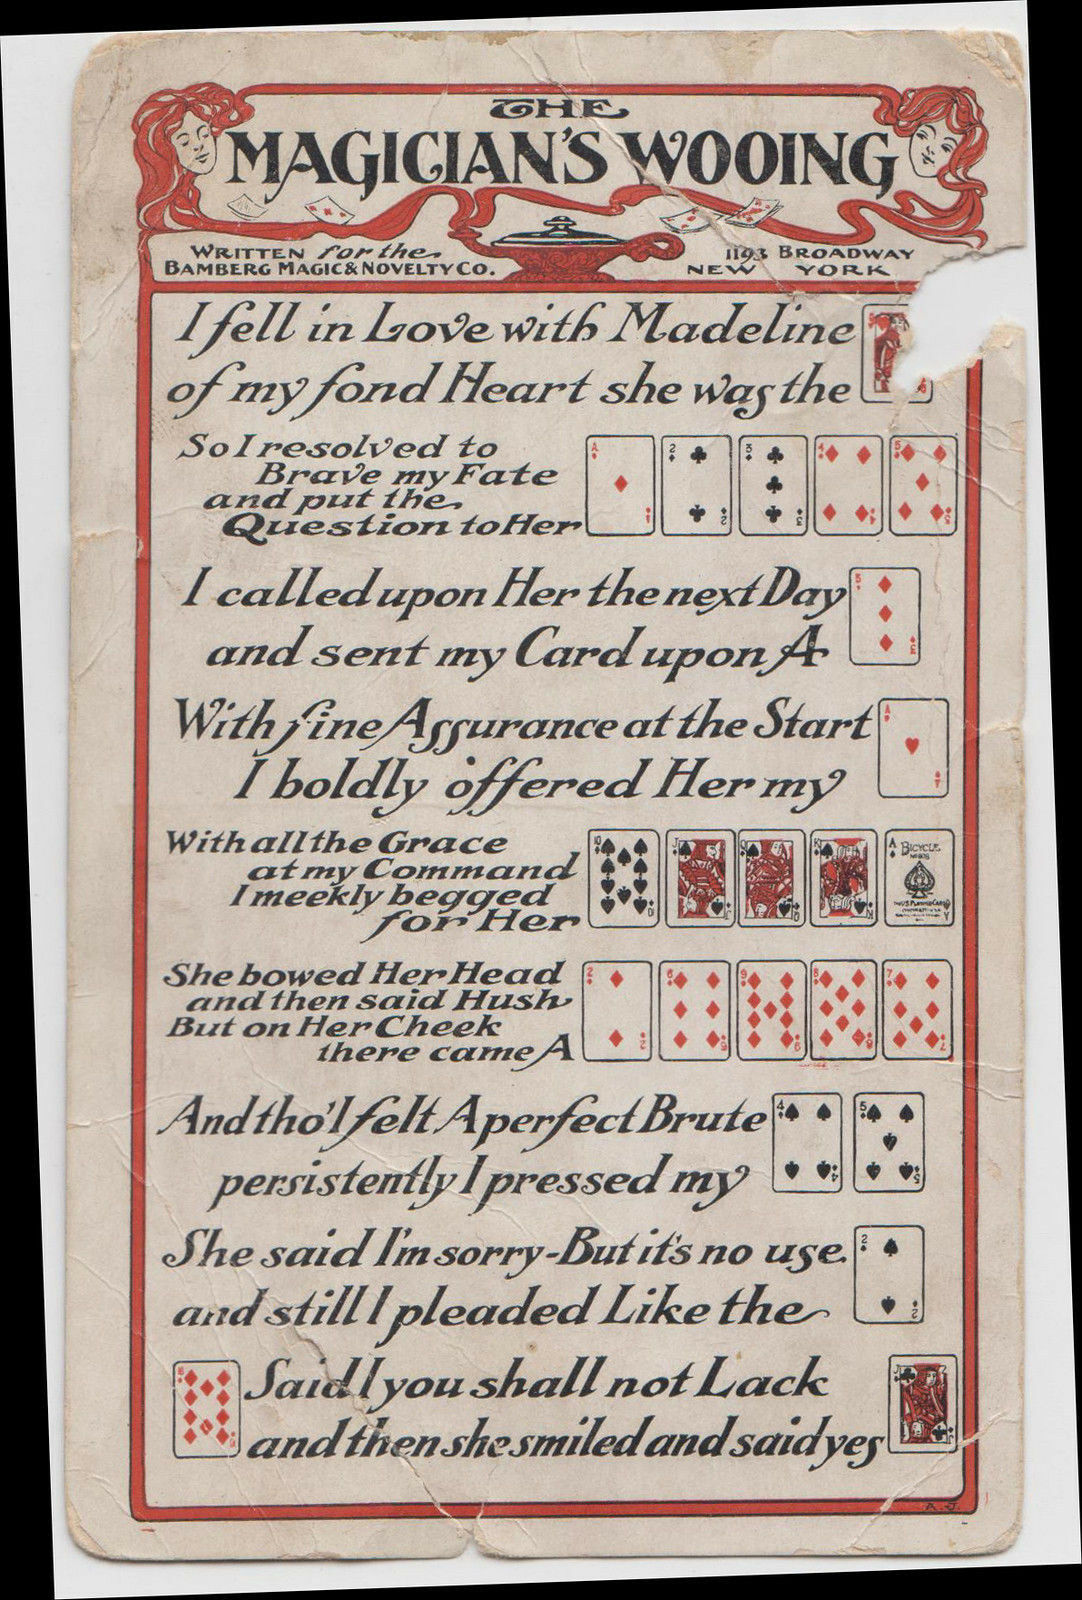 THE
MAGICIAN'S WOOING
WRITTEN for the
BAMBERG MAGIC & NOVELTY CO.
1193 BROADWAY
NEW YORK
I fell in Love with Madeline
of my fond Heart she was the
So I resolved to
Brave my Fate
and put the
Question to Her
A 2 3 4 5
I called upon Her the next Day
and sent my Card upon A
With fine Assurance at the Start
I boldly offered Her my
A
With all the Grace
at my Command
I meekly begged
for Her
10 J Q K A
BICYCLE
She bowed Her Head
and then said Hush
But on Her Cheek
there came A
2 6 9 8 7
And tho' I felt A perfect Brute
persistently I pressed my
4 5
She said I'm sorry - But it's no use
and still I pleaded Like the
2
Said I you shall not Lack
and then she smiled and said yes
J
A.J.